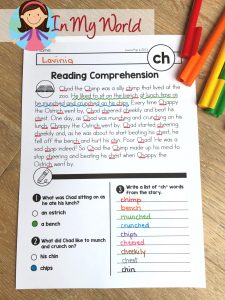 In My World
Lavinia
ch
Reading Comprehension
Chad the Chimp was a silly chimp that lived at the
zoo. He liked to sit on the bench at lunch time as
he munched and crunched on his chips. Every time Chappy
the Ostrich went by, Chad cheered cheekily and beat his
chest. One day, as Chad was munching and crunching on his
lunch, Chappy the Ostrich went by. Chad started cheering
cheekily and, as he was about to start beating his chest, he
fell off the bench and hurt his chin. Poor Chad! He was a
sad chimp indeed! So Chad the Chimp made up his mind to
stop cheering and beating his chest when Chappy the
Ostrich went by.
1 What was Chad sitting on as
he ate his lunch?
an ostrich
a bench
2 What did Chad like to munch
and crunch on?
his chin
chips
3 Write a list of "ch" words
from the story.
chimp
bench
munched
crunched
chips
cheered
cheekily
chest
chin